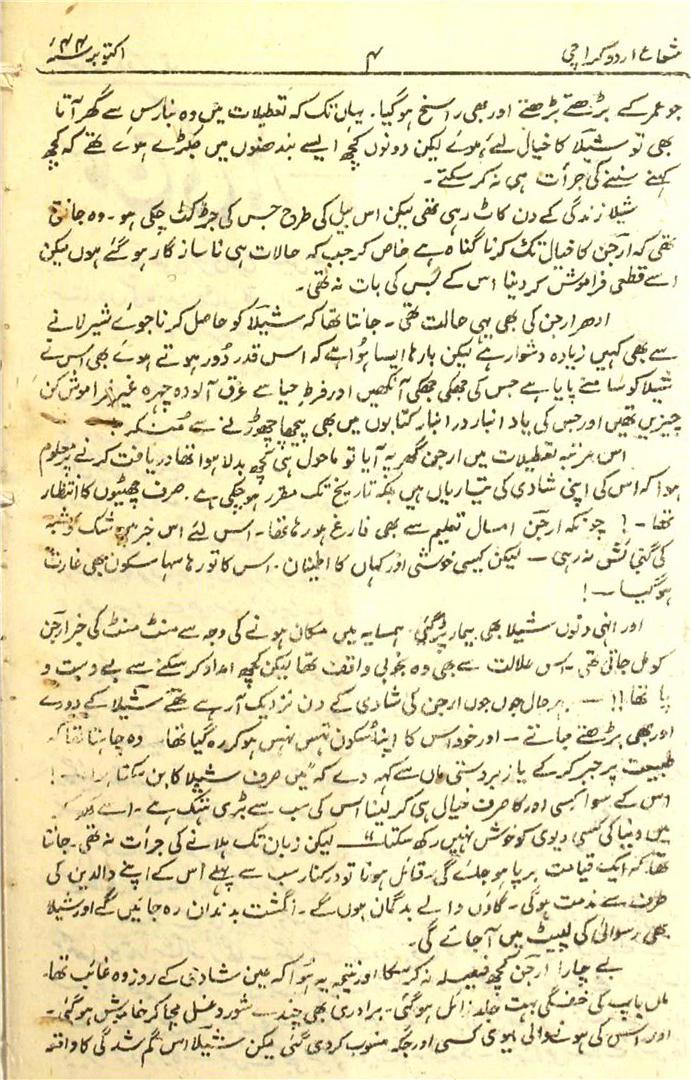 شعاع اردو کراچی ۴ اکتوبر ۴۴ء
جو عمر کے بڑھتے بڑھتے اور بھی راسخ ہو گیا۔ یہاں تک کہ تعطیلات میں وہ بنارس سے گھر آتا
بھی تو شیلا کا خیال لئے ہوئے لیکن دونوں کچھ ایسے بندھنوں میں جکڑے ہوئے تھے کہ کچھ
کہنے سننے کی جرأت ہی نہ کر سکتے۔
شیلا زندگی کے دن کاٹ رہی تھی لیکن اس بیل کی طرح جس کی جڑ کٹ چکی ہو۔ وہ جانتی
تھی کہ ارجن کا خیال تک کرنا گناہ ہے خاص کر جب کہ حالات ہی ناساز گار ہو گئے ہوں لیکن
اسے قطعی فراموش کر دینا اس کے بس کی بات نہ تھی۔
ادھر ارجن کی بھی یہی حالت تھی۔ جانتا تھا کہ شیلا کو حاصل کرنا جوئے شیر لانے
سے بھی کہیں زیادہ دشوار ہے لیکن بارہا ایسا ہوا ہے کہ اس قدر دور ہوتے ہوئے بھی اس نے
شیلا کو سامنے پایا ہے جس کی جھکی جھکی آنکھیں اور فرط حیا سے عرق آلودہ چہرہ غیر فراموش کن
چیزیں تھیں اور جس کی یاد انبار در انبار کتابوں میں بھی پیچھا چھوڑنے سے منکر
اس مرتبہ تعطیلات میں ارجن گھر پہ آیا تو ماحول ہی کچھ بدلا ہوا تھا دریافت کرنے پر معلوم
ہوا کہ اس کی اپنی شادی کی تیاریاں ہیں بلکہ تاریخ تک مقرر ہو چکی ہے۔ صرف چھٹیوں کا انتظار
تھا۔! چونکہ ارجن امسال تعلیم سے بھی فارغ ہو رہا تھا۔ اس لئے اس خبر میں شک و شبہ
کی گنجائش نہ رہی — لیکن کیسی خوشی اور کہاں کا اطمینان۔ اس کا تو رہا سہا سکون بھی غارت
ہو گیا —!
اور انہی دنوں شیلا بھی بیمار پڑ گئی۔ ہمسایہ میں مکان ہونے کی وجہ سے منٹ منٹ کی خبر ارجن
کو مل جاتی تھی۔ اس علالت سے بھی وہ بخوبی واقف تھا لیکن کچھ امداد کر سکنے سے بے دست و
پا تھا!! — بہر حال جوں جوں ارجن کی شادی کے دن نزدیک آ رہے تھے شیلا کے دورے
اور بھی بڑھتے جاتے — اور خود اس کا اپنا سکون تہس نہس ہو کر رہ گیا تھا۔ وہ چاہتا تھا کہ
طبیعت پر جبر کر کے یا زبردستی ماں سے کہہ دے کہ "میں صرف شیلا کا بن سکتا ہوں —!
اس کے سوا کسی اور کا صرف خیال ہی کر لینا اس کی سب سے بڑی ہتک ہے۔ اسے
میں دنیا کی کسی دیوی کو خوش نہیں رکھ سکتا" — لیکن زبان تک ہلانے کی جرأت نہ تھی۔ جانتا
تھا کہ ایک قیامت برپا ہو جائے گی۔ قائل ہونا تو درکنار سب سے پہلے اس کے اپنے والدین کی
طرف سے مذمت ہو گی۔ گاؤں والے بدگمان ہوں گے۔ انگشت بدنداں رہ جائیں گے اور شیلا
بھی رسوائی کی لپیٹ میں آ جائے گی۔
بے چارا ارجن کچھ فیصلہ نہ کر سکا اور نتیجہ یہ ہوا کہ عین شادی کے روز وہ غائب تھا۔
ماں باپ کی خفگی بہت جلد زائل ہو گئی۔ برادری بھی چند — شور و غل مچا کر خاموش ہو گئی۔
اور اس کی ہونے والی بیوی کسی اور جگہ منسوب کر دی گئی لیکن شیلا اس گم شدگی کا واقعہ